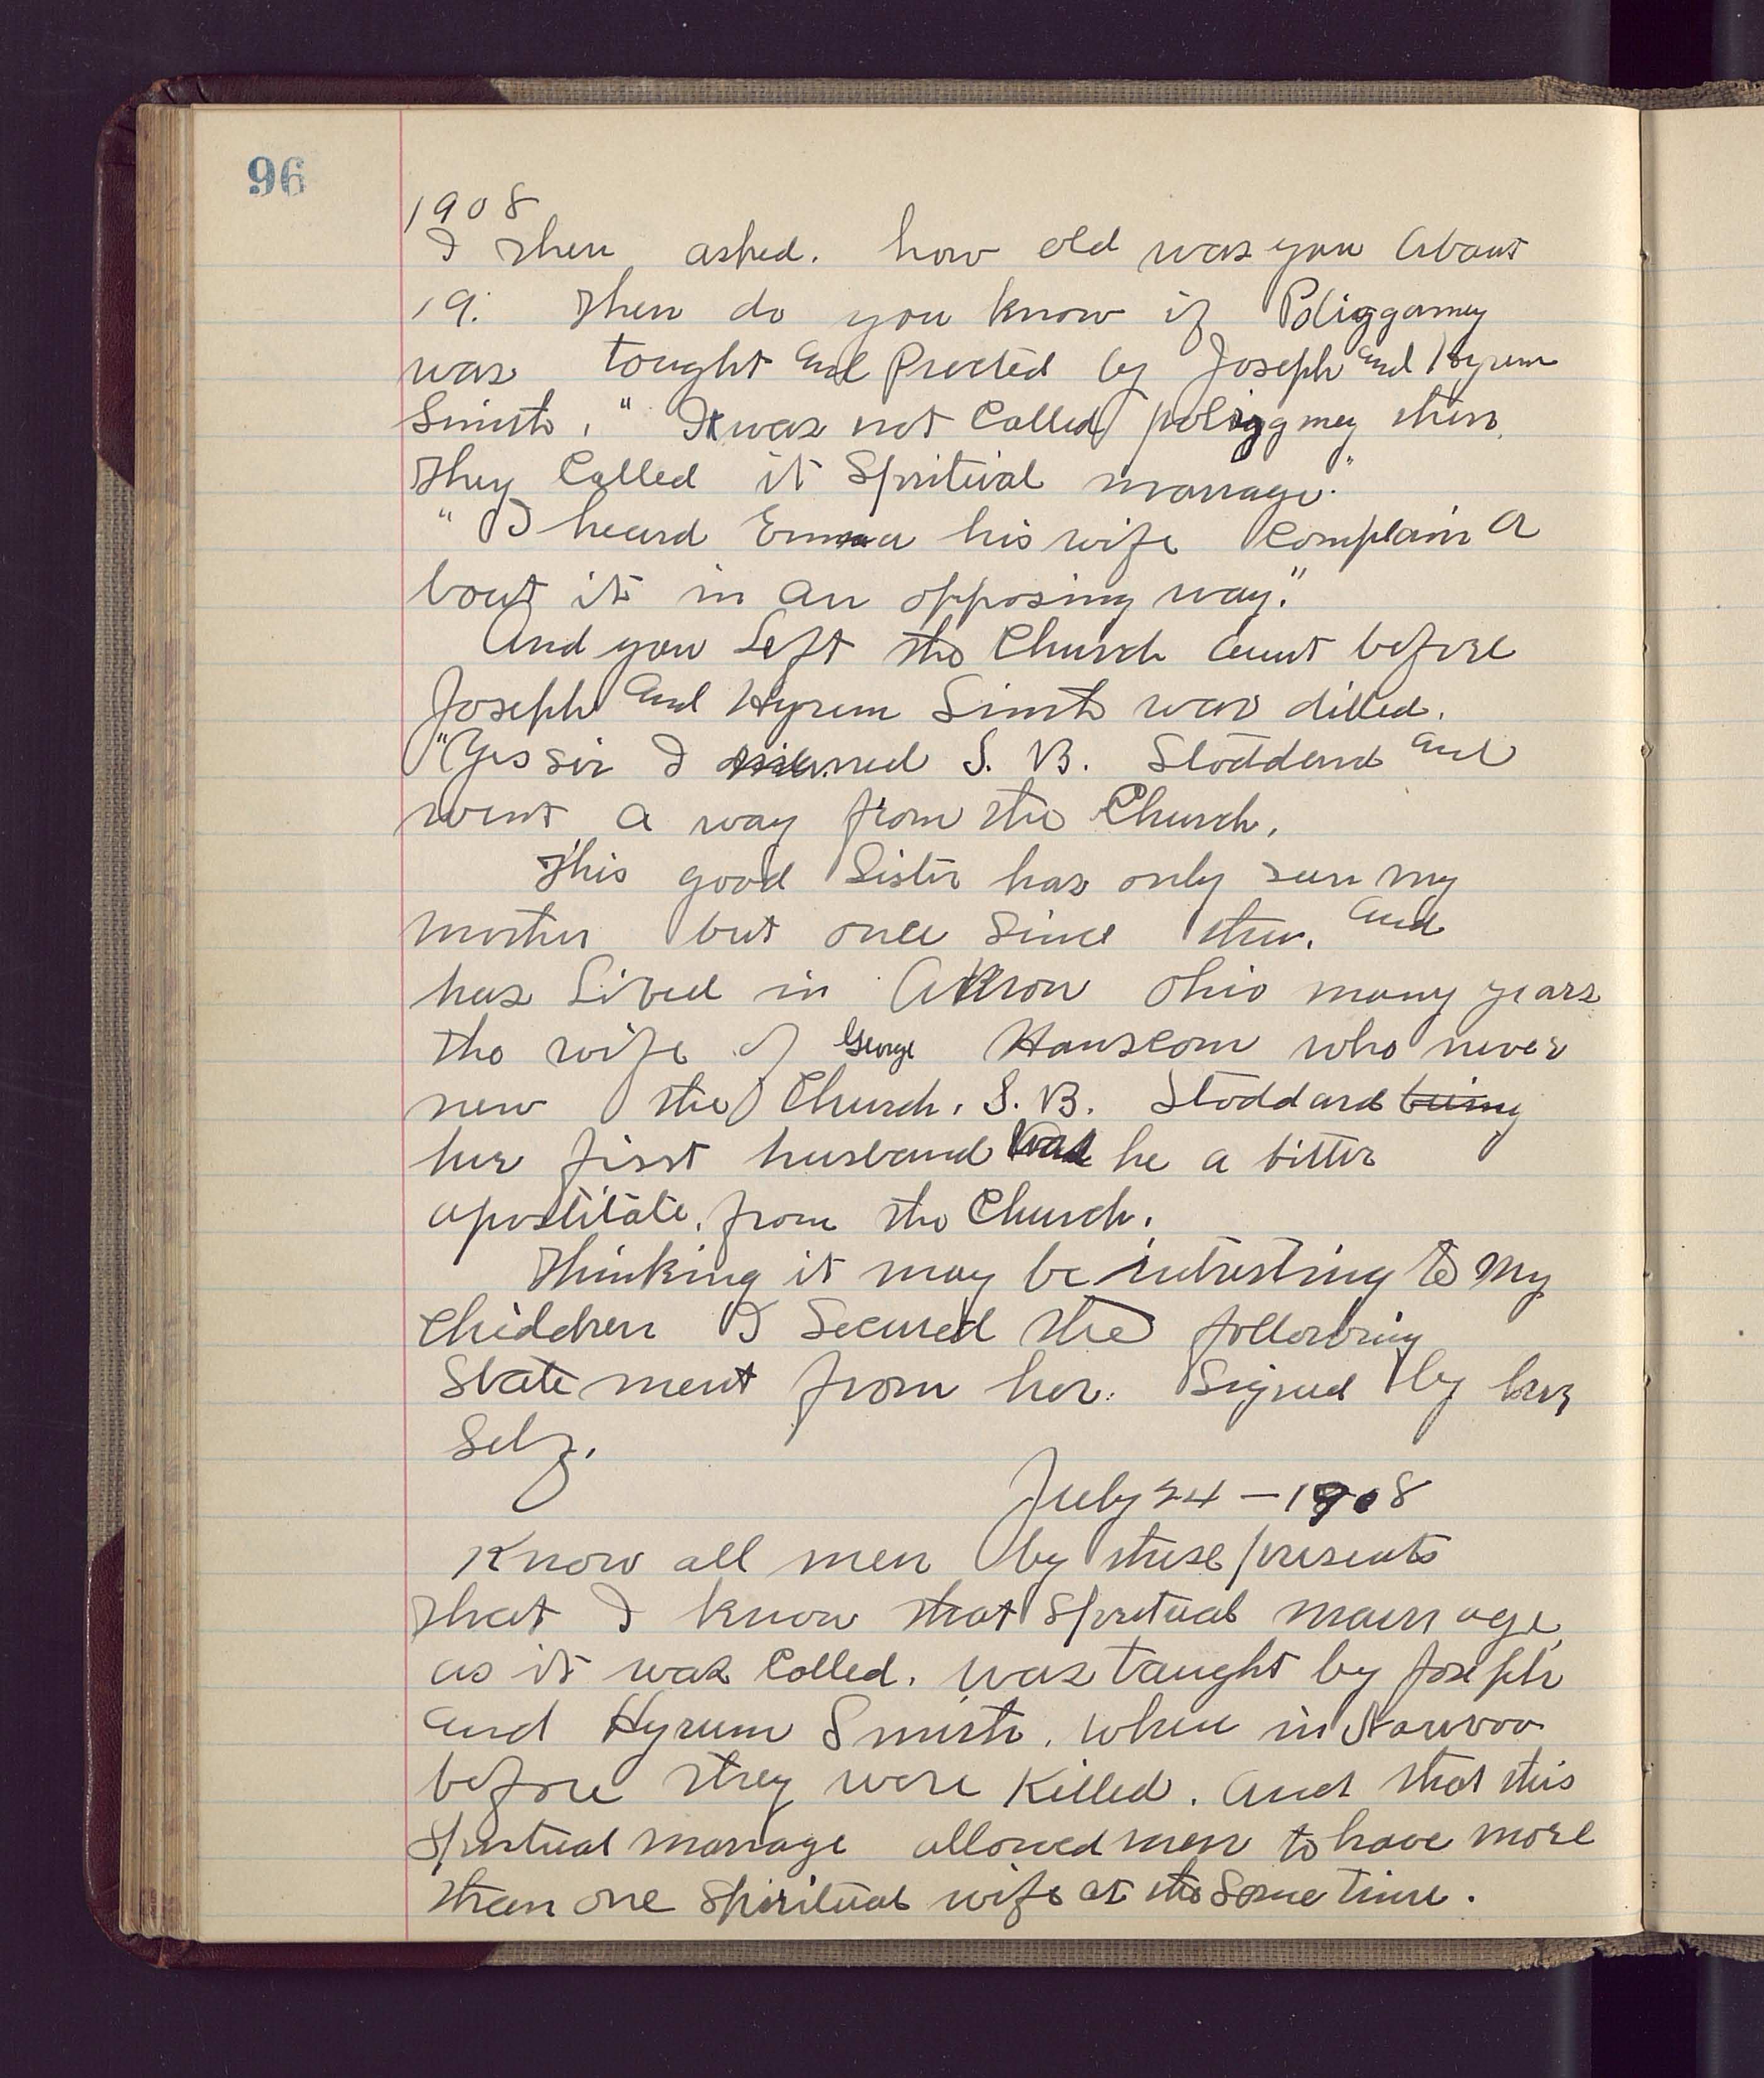 96
1908
I then asked. how old was you About
19. Then do you know if Poliggamey
was tought and Precticed by Joseph and Hyrum
Smith. " It was not Called poliggmey then
They Called it Spritival marrage."
" I heard Emma his wife Complain A
bout it in an opposing way."
And you Left the Church aunt before
Joseph and Hyrum Smith was dilled.
"Yes sir I married S. B. Stoddard and
went a way from the Church.
This good Sister has only seen my
mother but once Since then. and
has Lived in AKron Ohio many years
the wife of George Hanscom who never
new the Church. S. B. Stoddard being
her first husband was he a bitter
apostitate. from the Church.
Thinking it may be intresting to my
Children I Secured the following
State ment from her. Signed by her
Self.
July 24 - 1908
Know all men by these presents
That I know that Spiritual marriage,
as it was Called. was taught by Joseph
and Hyrum Smith. when in Nauvoo
before they were Killed. and that this
Spiritual marrage allowed men to have more
than one Spiritual wife at the Same time.